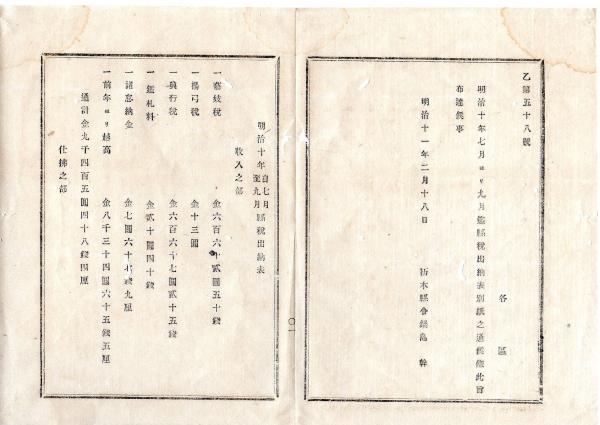 乙第五十八號
各區
明治十年七月ヨリ九月迄縣税出納表別紙之通候條此旨
布達候事
明治十一年二月十八日
栃木縣令鍋島 幹
明治十年自七月至九月縣税出納表
收入之部
一藝妓税 金六百六十貳圓五十錢
一揚弓税 金十三圓
一興行税 金六百六十七圓貳十五錢
一鑑札料 金貳十圓四十錢
一諸怠納金 金七圓六十七錢九厘
一前年ヨリ越高 金八千三十四圓六十五錢五厘
通計金九千四百五圓四十八錢四厘
仕拂之部